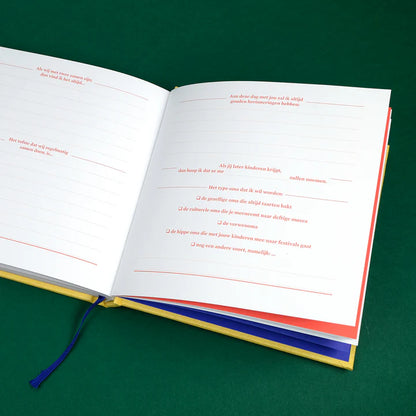 Als wij met onze samen zijn,
dan vind ik het altijd...
Het liefste dat wij regelmatig
samen doen is...
Aan deze dag met jou zal ik altijd
gouden herinneringen hebben:
Als jij later kinderen krijgt,
dan hoop ik dat ze me zullen noemen.
Het type oma dat ik wil worden:
❏ de gezellige oma die altijd taarten bakt
❏ de culturele oma die je meeneemt naar deftige musea
❏ de verwenoma
❏ de hippe oma die met jouw kinderen mee naar festivals gaat
❏ nog een andere soort, namelijk: ...